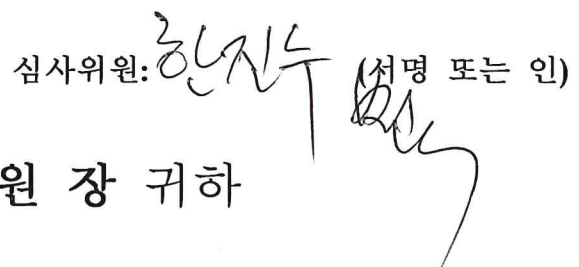 심사위원: 한진수 (서명 또는 인)
원 장 귀하